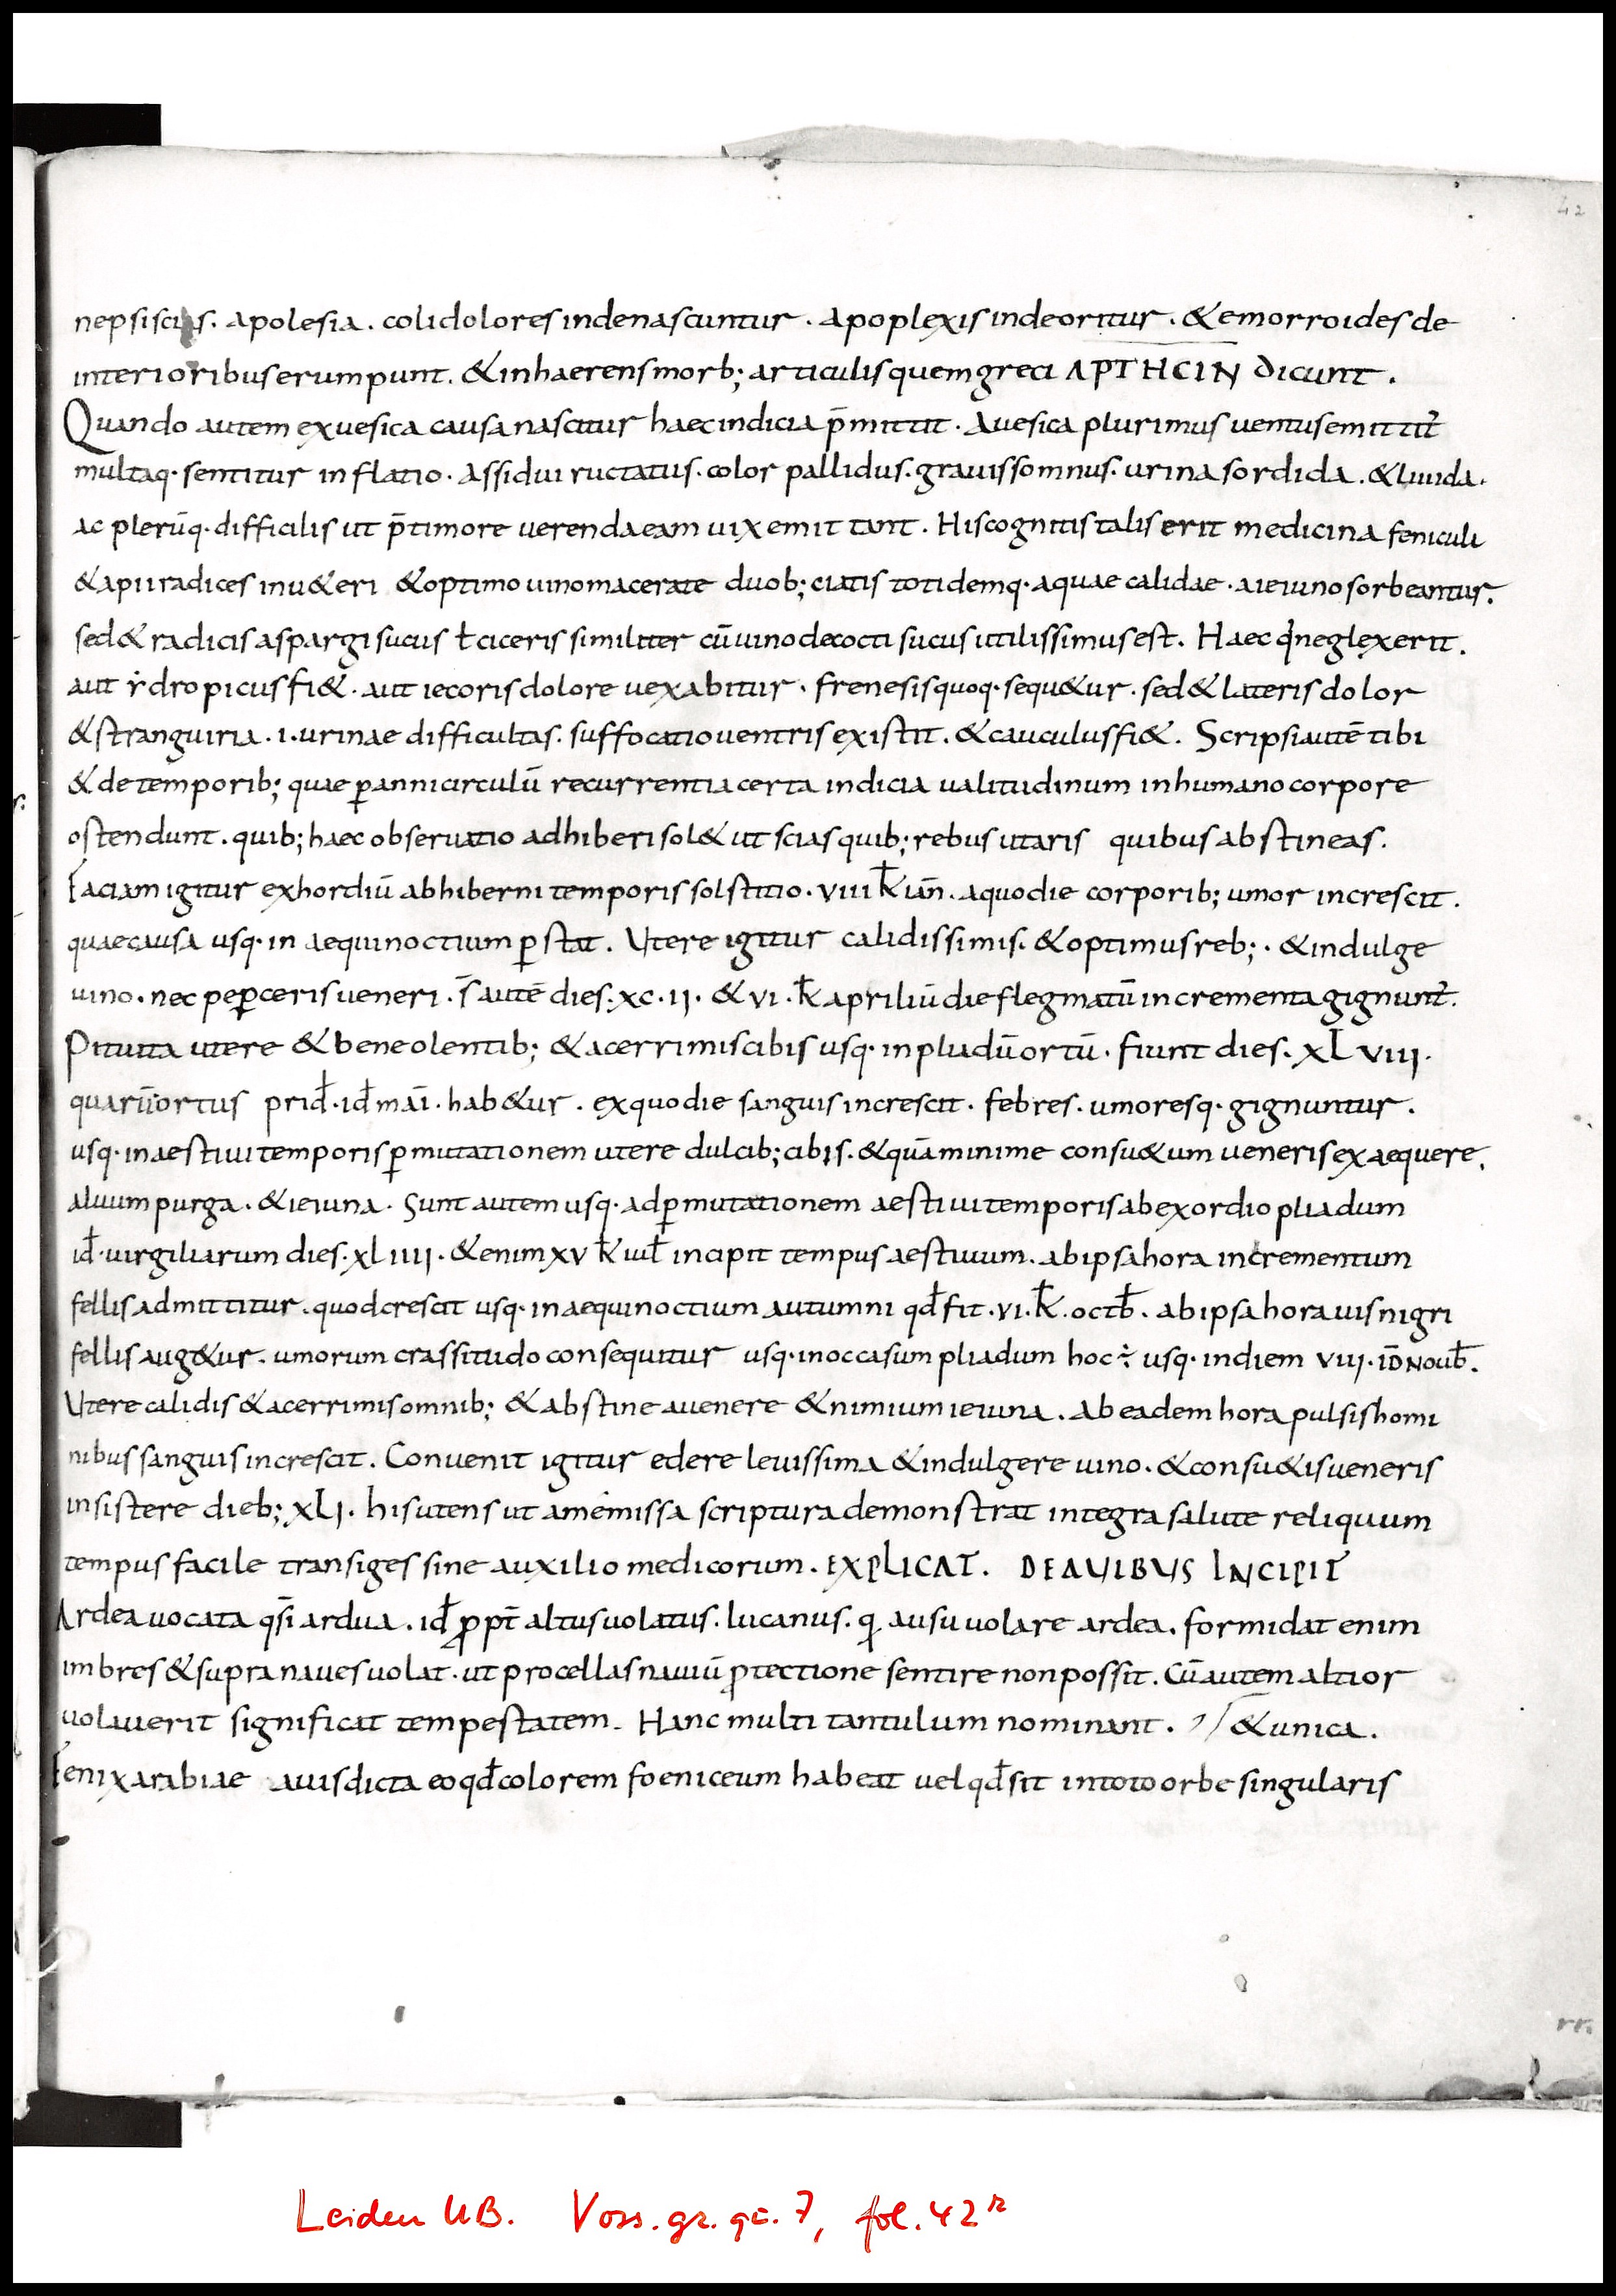 42
nepsiscias. apolesia. coli dolores inde nascuntur. apoplexis inde oritur. & emorroides de
interioribus erumpunt. & inhaerens morb; articulis quem greci ΑΡΤΗCΙΝ dicunt.
Quando autem ex uesica causa nascitur haec indicia p̄mittit. A uesica plurimus uentus emittit᷑
multaq· sentitur inflatio. assidui ructatus. color pallidus. grauis somnus. urina sordida. & liuida.
ac plerūq· difficilis ut p̄ timore uerendaeam uix emittant. His cognitis talis erit medicina feniculi
& apii radices inu&eri & optimo uino macerate duob; ciatis totidemq· aquae calidae. a ieiuno sorbeantur.
sed & radicis aspargi sucus ł ciceris similiter cū uino decocti sucus utilissimus est. Haec qͥ neglexerit.
aut ẏdropicus fi&. aut iecoris dolore uexabitur. frenesis quoq· sequ&ur. sed & lateris dolor
& stranguiria. i. urinae difficultas. suffocatio uentris existit. & cauculus fi&. Scripsi autē tibi
& de temporib; quae ꝑ anni circulū recurrentia certa indicia ualitudinum in humano corpore
ostendunt. quib; haec obseruatio adhiberi sol& ut scias quib; rebus utaris quibus abstineas.
Faciam igitur exhordiū ab hiberni temporis solstitio. VIII k̄ iañ. a quo die corporib; umor increscit.
quae causa usq· in aequinoctium ꝑstat. Utere igitur calidissimis. & optimus reb;. & indulge
uino. nec peꝑceris ueneri. s̄ autē dies. XC. II. & VI. k̄ apriliū die flegmatū incrementa gignunt᷑.
Pituita utere & bene olentib; & acerrimis cibis usq· in pliadū ortū. fiunt dies. XLVIII.
quarū ortus prid̄. id̄ mai̅. hab&ur. ex quo die sanguis increscit. febres. umoresq· gignuntur.
usq· in aestiui temporis ꝑmutationem utere dulcib; cibis. & quā minime consu&um ueneris exaequere.
aluum purga. & ieiuna. Sunt autem usq· ad ꝑmutationem aestiui temporis ab exordio pliadum
id̄. uirgiliarum dies. XLIIII. & enim XV k̄ iul̄ incipit tempus aestiuum. ab ipsa hora incrementum
fellis admittitur. quod crescit usq· in aequinoctium autumni qd̄ fit. VI. k̄. octb̄. ab ipsa hora uis nigri
fellis aug&ur. umorum crassitudo consequitur usq· in occasum pliadum hoc ÷ usq· in diem VIII. ID̄ Noub̄.
Utere calidis & acerrimis omnib; & abstine a uenere & nimium ieiuna. Ab eadem hora pulsis homi
nibus sanguis increscit. Conuenit igitur edere leuissima & indulgere uino. & consu&is ueneris
insistere dieb; XLI. his utens ut a me missa scriptura demonstrat integra salute reliquum
tempus facile transiges sine auxilio medicorum. EXPLICAT. DE AUIBUS INCIPIT
Ardea uocata qs̄i ardua. id̄ ꝓpt̄ altus uolatus. lucanus. q; ausu uolare ardea. formidat enim
imbres & supra naues uolat. ut procellas nauiū ꝓtectione sentire non possit. Cū autem altior
uolauerit significat tempestatem. Hanc multi tantulum nominant. & unica.
Fenix arabiae auis dicta eo qd̄ colorem foeniceum habeat uel qd̄ sit in toto orbe singularis
rr.
Leiden UB. Voss. gr. qu. 7, fol. 42r